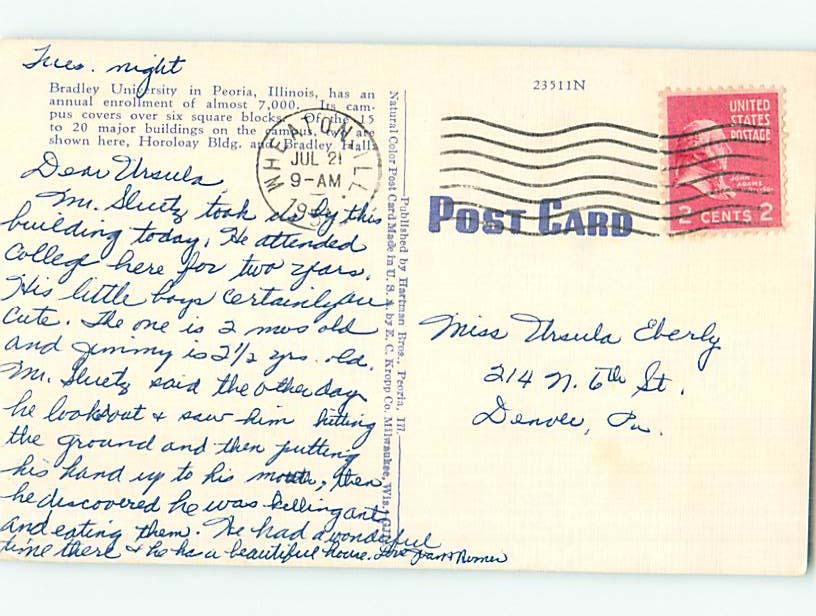 Tues. night
Bradley University in Peoria, Illinois, has an
annual enrollment of almost 7,000. Its cam-
pus covers over six square blocks. Of the 15
to 20 major buildings on the campus, two are
shown here, Horoloay Bldg. and Bradley Hall
Dear Ursula,
Mr. Sluetz took us by this
building today. He attended
College here for two years.
His little boys certainly are
cute. The one is 2 mos old
and Jimmy is 2 1/2 yrs. old.
Mr. Sluetz said the other day
he looked out & saw him hitting
the ground and then putting
his hand up to his mouth, then
he discovered he was killing ants
and eating them. We had a wonderful
time there & he has a beautiful house. Love
Published by Hartman Bros., Peoria, Ill.
Natural Color Post Card Made in U. S. A. by E. C. Kropp Co. Milwaukee, Wis.
23511N
WHEATON ILL.
JUL 21
9-AM
POST CARD
UNITED
STATES
POSTAGE
JOHN
ADAMS
2 CENTS 2
Miss Ursula Eberly
214 N. 6th St.
Denver, Pa.